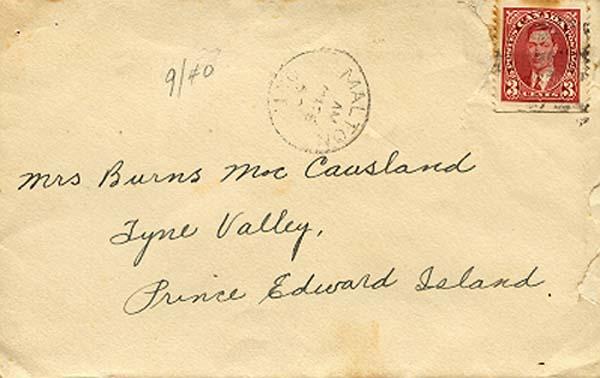 9/40
MALTON
AM
POSTES CANADA POSTAGE
3 CENTS 3
Mrs Burns Mac Causland
Tyne Valley,
Prince Edward Island.